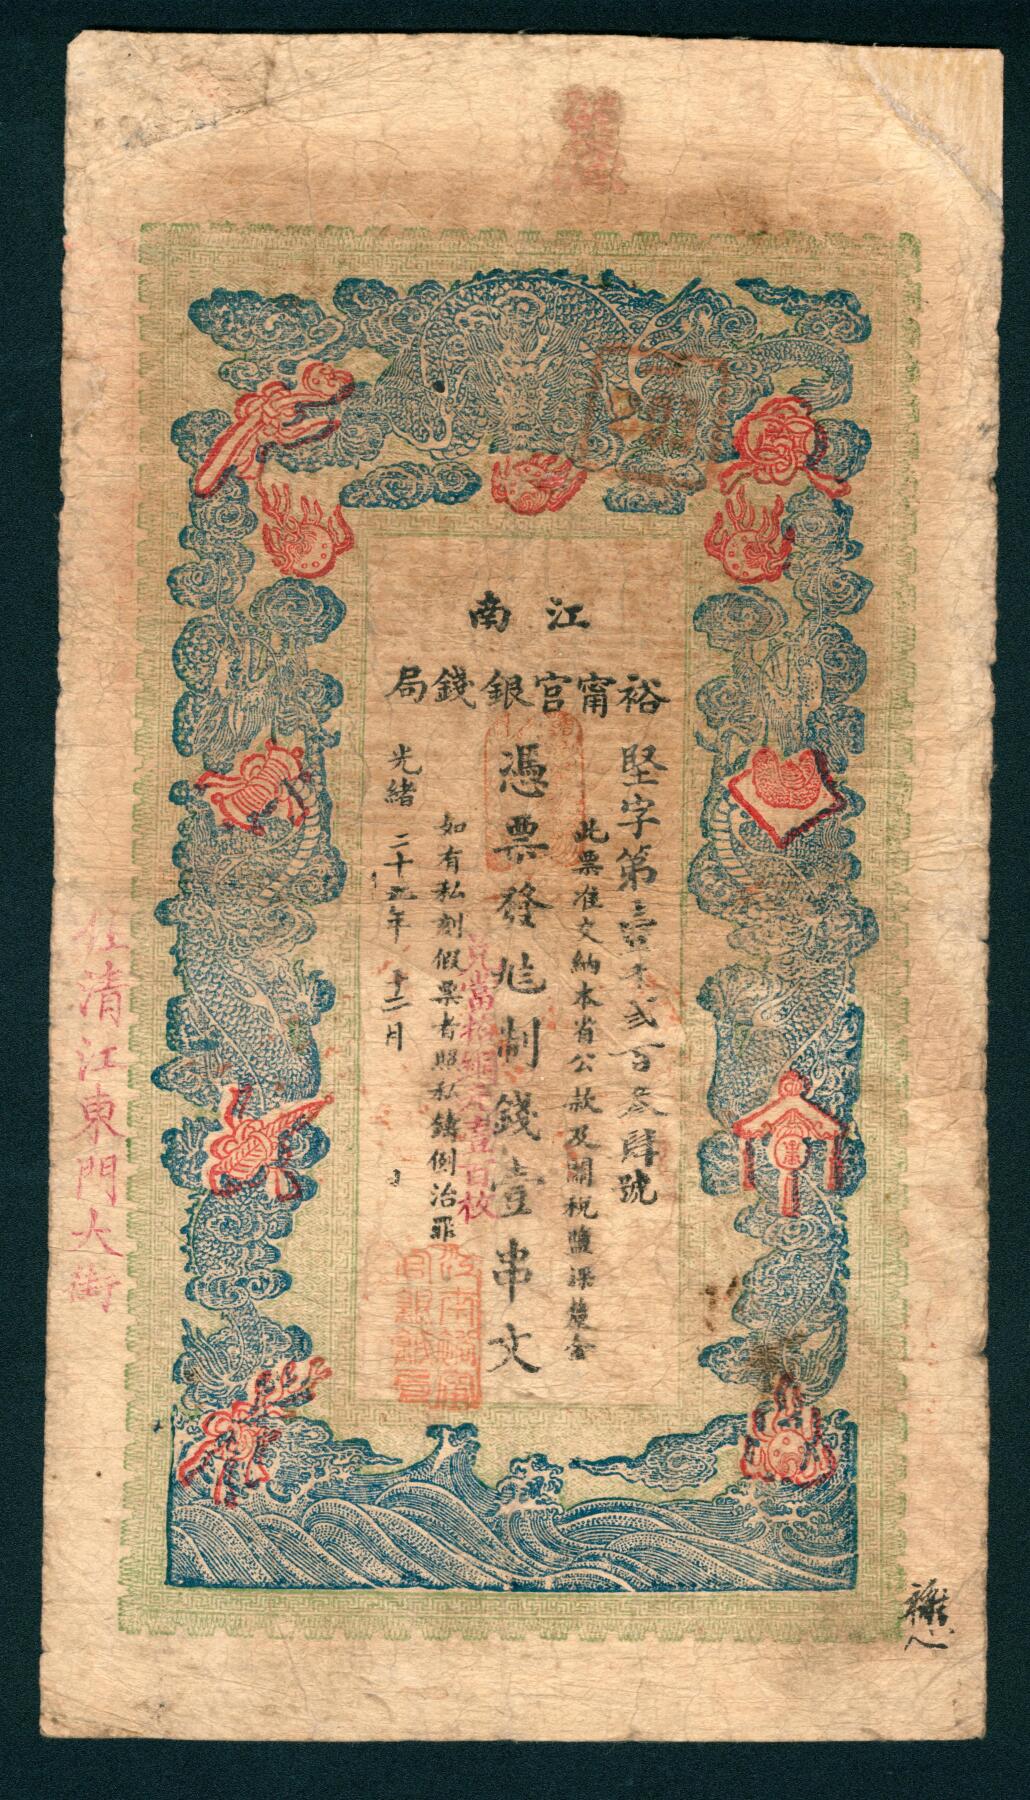 江南
裕甯官銀錢局
堅字第壹千貳百叁肆號
此票准交納本省公款及關稅鹽課釐金
憑票發足制錢壹串文
兌當拾銅元壹百枚
如有私刻假票者照私鑄例治罪
光緒二十九年十二月
江南裕甯
官銀錢局
在清江東門大街